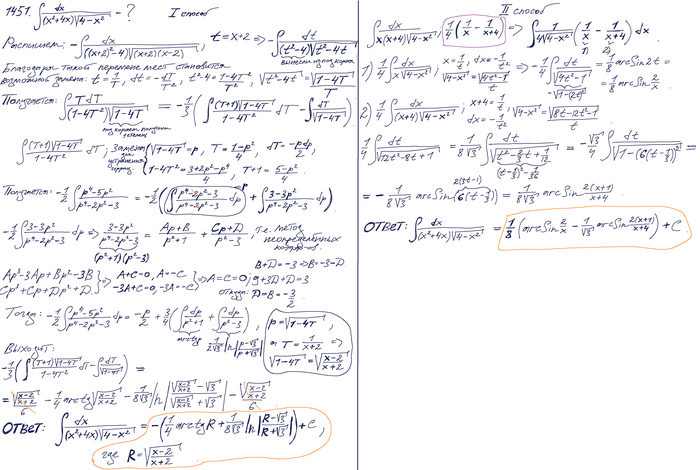 1451. ∫ dx/((x²+4x)√(4-x²)) - ? I способ
Распишем: -∫ dx/(((x+2)²-4)√((x+2)(x-2))), t = x+2 => -∫ dt/((t²-4)√(t²-4t))
вынесем из под корня
Благодаря такой перемене мест становится
возможной замена: t = 1/T, dt = -dT/T², t²-4 = (1-4T²)/T², √(t²-4t) = √(1-4T)/T
Получается: ∫ T dT/((1-4T²)√(1-4T)) = -1/3 (∫ (T+1)√(1-4T)/(1-4T²) dT - ∫ dT/√(1-4T))
∫ (T+1)√(1-4T)/(1-4T²) dT; Замена для устранения иррац. {√(1-4T) = p, T = (1-p²)/4, dT = -p dp/2,
1-4T² = (3+2p²-p⁴)/4, T+1 = (5-p²)/4.
Получаем: -1/2 ∫ (p⁴-5p²)/(p⁴-2p²-3) = -1/2 (∫ (p⁴-2p²-3)/(p⁴-2p²-3) dp + ∫ (3-3p²)/(p⁴-2p²-3) dp)
-1/2 ∫ (3-3p²)/(p⁴-2p²-3) dp => (3-3p²)/(p⁴-2p²-3) = (Ap+B)/(p²+1) + (Cp+D)/(p²-3) т.е. метод
неопределённых
коэфф-ов.
(p²+1)(p²-3)
Ap³-3Ap+Bp²-3B
Cp³+Cp+Dp²+D} => A+C=0, A=-C
-3A+C=0, -3A=-C} => A=C=0; 9+3D+D=3
B+D=-3 => B=-3-D
Откуда: D=B=-3/2
Тогда: -1/2 ∫ (p⁴-5p²)/(p⁴-2p²-3) dp = -p/2 + 3/4 (∫ dp/(p²+1) + ∫ dp/(p²-3)), p = √(1-4T),
arctg p 1/(2√3) ln|(p-√3)/(p+√3)|
а T = 1/(x+2) =>
√(1-4T) = √((x-2)/(x+2))
Выходит:
-1/3 (∫ (T+1)√(1-4T)/(1-4T²) dT - ∫ dT/√(1-4T)) =
= √((x-2)/(x+2))/6 - 1/4 arctg √((x-2)/(x+2)) - 1/(8√3) ln|(√((x-2)/(x+2)) - √3)/(√((x-2)/(x+2)) + √3)| - √((x-2)/(x+2))/6
ОТВЕТ: ∫ dx/((x²+4x)√(4-x²)) = -(1/4 arctg R + 1/(8√3) ln|(R-√3)/(R+√3)|) + C,
где R = √((x-2)/(x+2))
II способ
∫ dx/(x(x+4)√(4-x²)), 1/4 (1/x - 1/(x+4)) => ∫ 1/(4√(4-x²)) (1/x - 1/(x+4)) dx.
1) 2)
1) 1/4 ∫ dx/(x√(4-x²)), x = 1/t, dx = -1/t², √(4-x²) = √(4t²-1)/t => -1/4 ∫ dt/√(4t²-1) = 1/8 arcSin 2t =
-√(1-(2t)²)
= 1/8 arcSin 2/x
2) 1/4 ∫ dx/((x+4)√(4-x²)), x+4 = 1/t, dx = -1/t², √(4-x²) = √(8t-12t²-1)/t
1/4 ∫ dt/√(12t²-8t+1) = 1/(8√3) ∫ dt/√(t²-2/3 t+1/12) = -√3/4 ∫ dt/√(1-(6(t-1/3))²) =
(t-1/3)²-1/36
= -1/(8√3) arcSin(6(t-1/3)) = 1/(8√3) arcSin 2(x+1)/(x+4)
2(3t-1)
ОТВЕТ: ∫ dx/((x²+4x)√(4-x²)) = 1/8 (arcSin 2/x - 1/√3 arcSin 2(x+1)/(x+4)) + C.